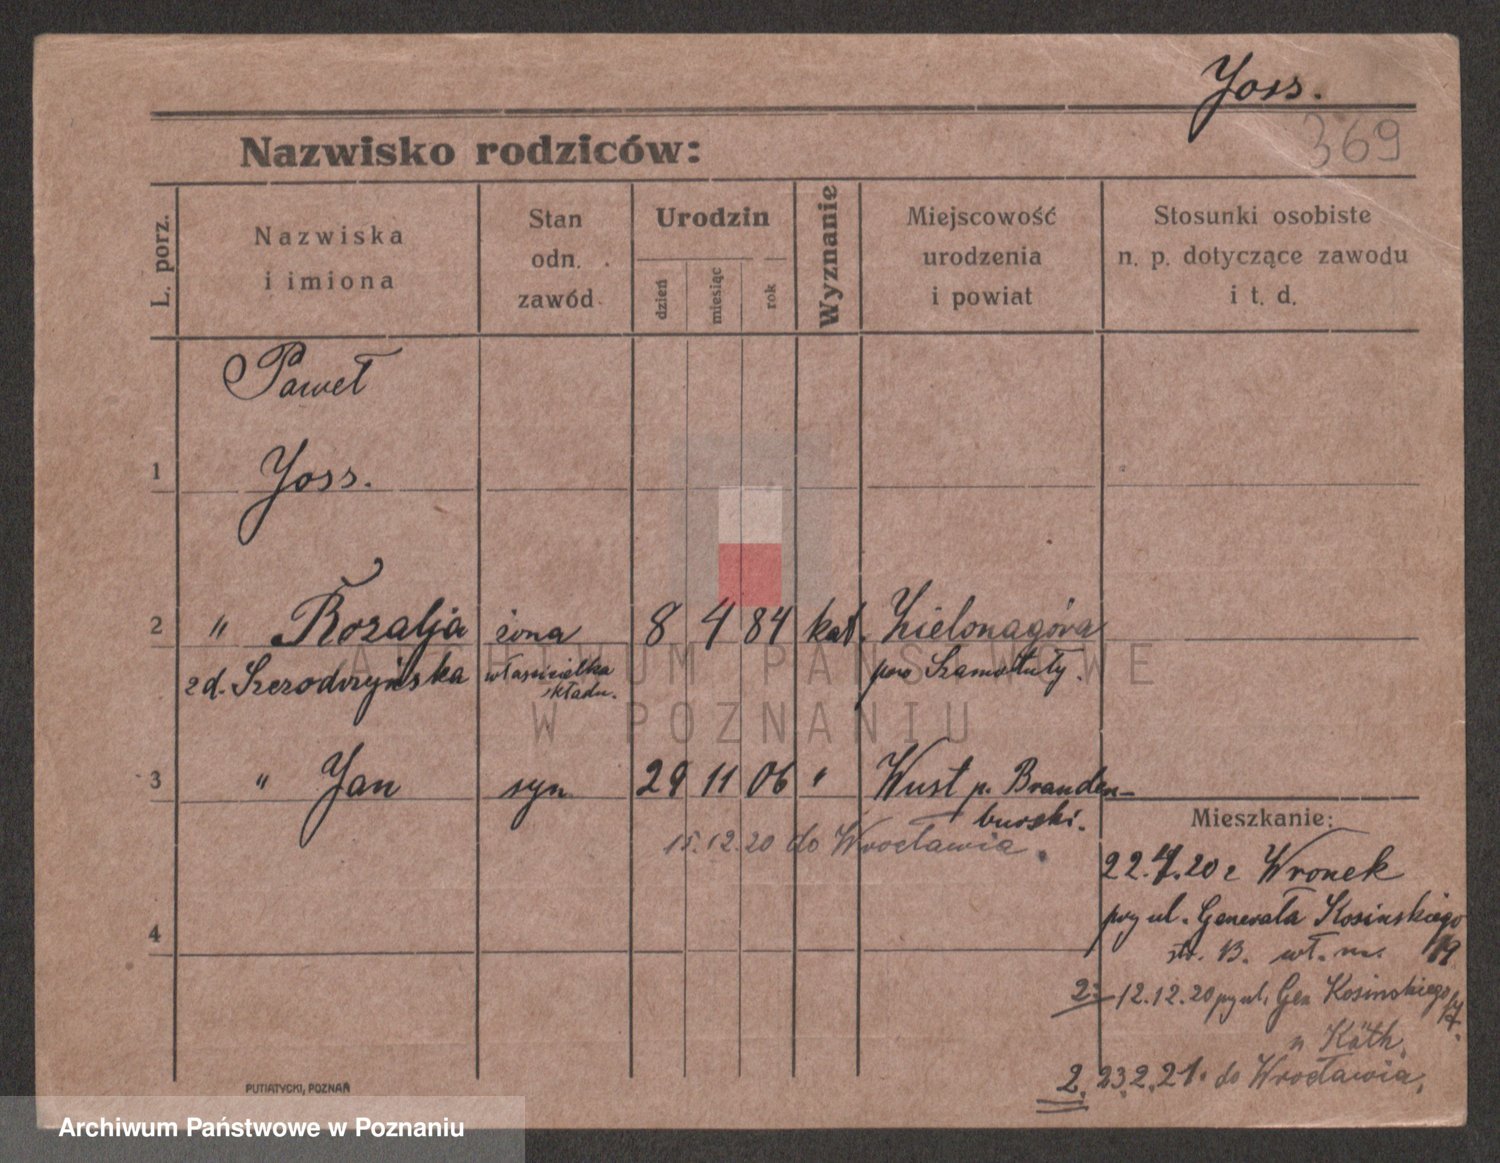 Yoss.
369
Nazwisko rodziców:
L. porz.
Nazwiska
i imiona
Stan
odn.
zawód
Urodzin
dzień
miesiąc
rok
Wyznanie
Miejscowość
urodzenia
i powiat
Stosunki osobiste
n. p. dotyczące zawodu
i t. d.
Paweł
1
Yoss.
2 " Rozalja żona 8 4 84 kat. Zielonagóra
zd. Szczodrzyńska właścicielka pow Szamotuły.
składu.
3 " Jan syn 29 11 06 " Wust p. Branden-
burski.
15.12.20 do Wrocławia.
4
Mieszkanie:
22.4.20 z Wronek
przy ul. Generała Kosinskiego
str. B. wł. m. 19
2: 12.12.20 przy ul. Gen Kosinskiego 17.
n Käth.
2. 23.2.21. do Wrocławia.
PUTIATYCKI, POZNAŃ
ARCHIWUM PAŃSTWOWE
W POZNANIU
Archiwum Państwowe w Poznaniu